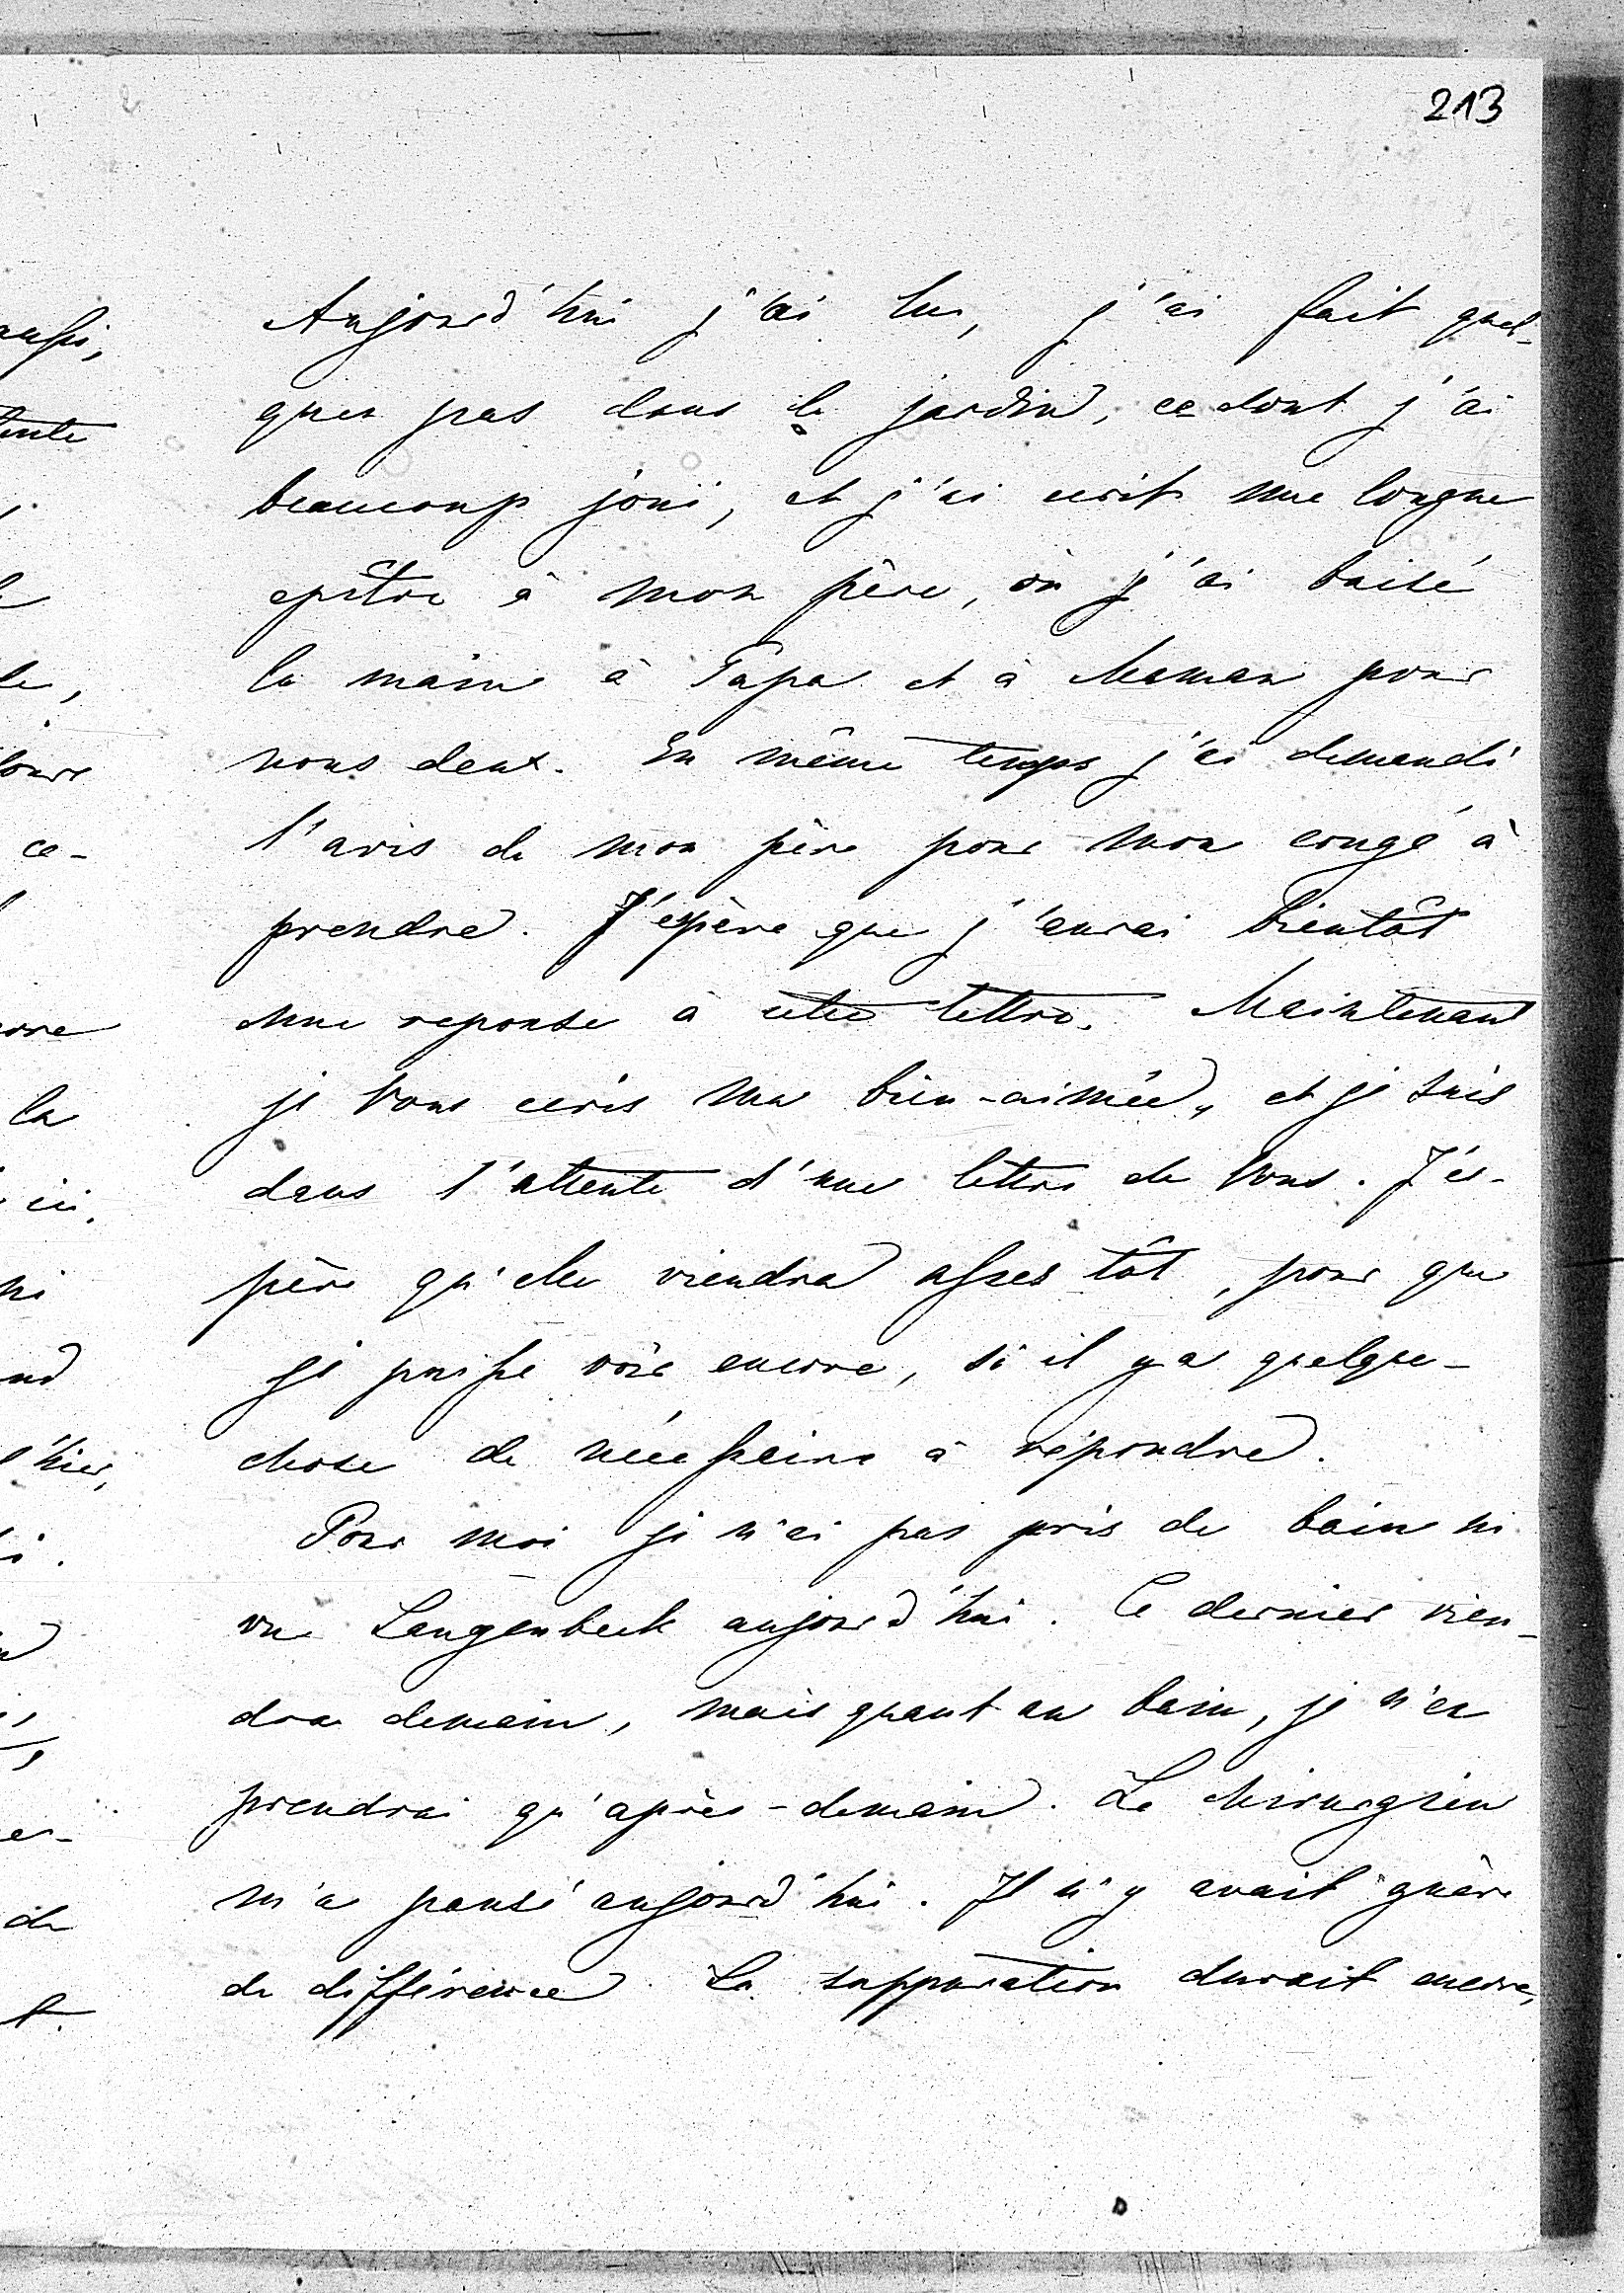 213
Aujourd'hui j'ai lu, j'ai fait quel-
ques pas dans le jardin, ce dont j'ai
beaucoup joui, et j'ai ecrit une longue
epître à mon père, où j'ai baisé
la main à Papa et à Maman pour
nous deux. En même temps j'ai demandé
l'avis de mon père pour mon congé à
prendre. J'espère que j'aurai bientôt
une reponse à cette lettre. Maintenant
je Vous ecris ma bien-aimée, et je suis
dans l'attente d'une lettre de Vous. J'es-
père qu'elle viendra assez tôt, pour que
je puisse voir encore, si il y a quelque-
chose de nécessaire à répondre.
Pour moi je n'ai pas pris de bain ni
vu Langenbeck aujourd'hui. Ce dernier vien-
dra demain, mais quant au bain, je n'en
prendrai qu'après-demain. Le chirurgien
m'a pansé aujourd'hui. Il n'y avait guère
de différence. La suppuration durait encore,
aussi,
tente
ce-
la
ici.
d'hier,
de